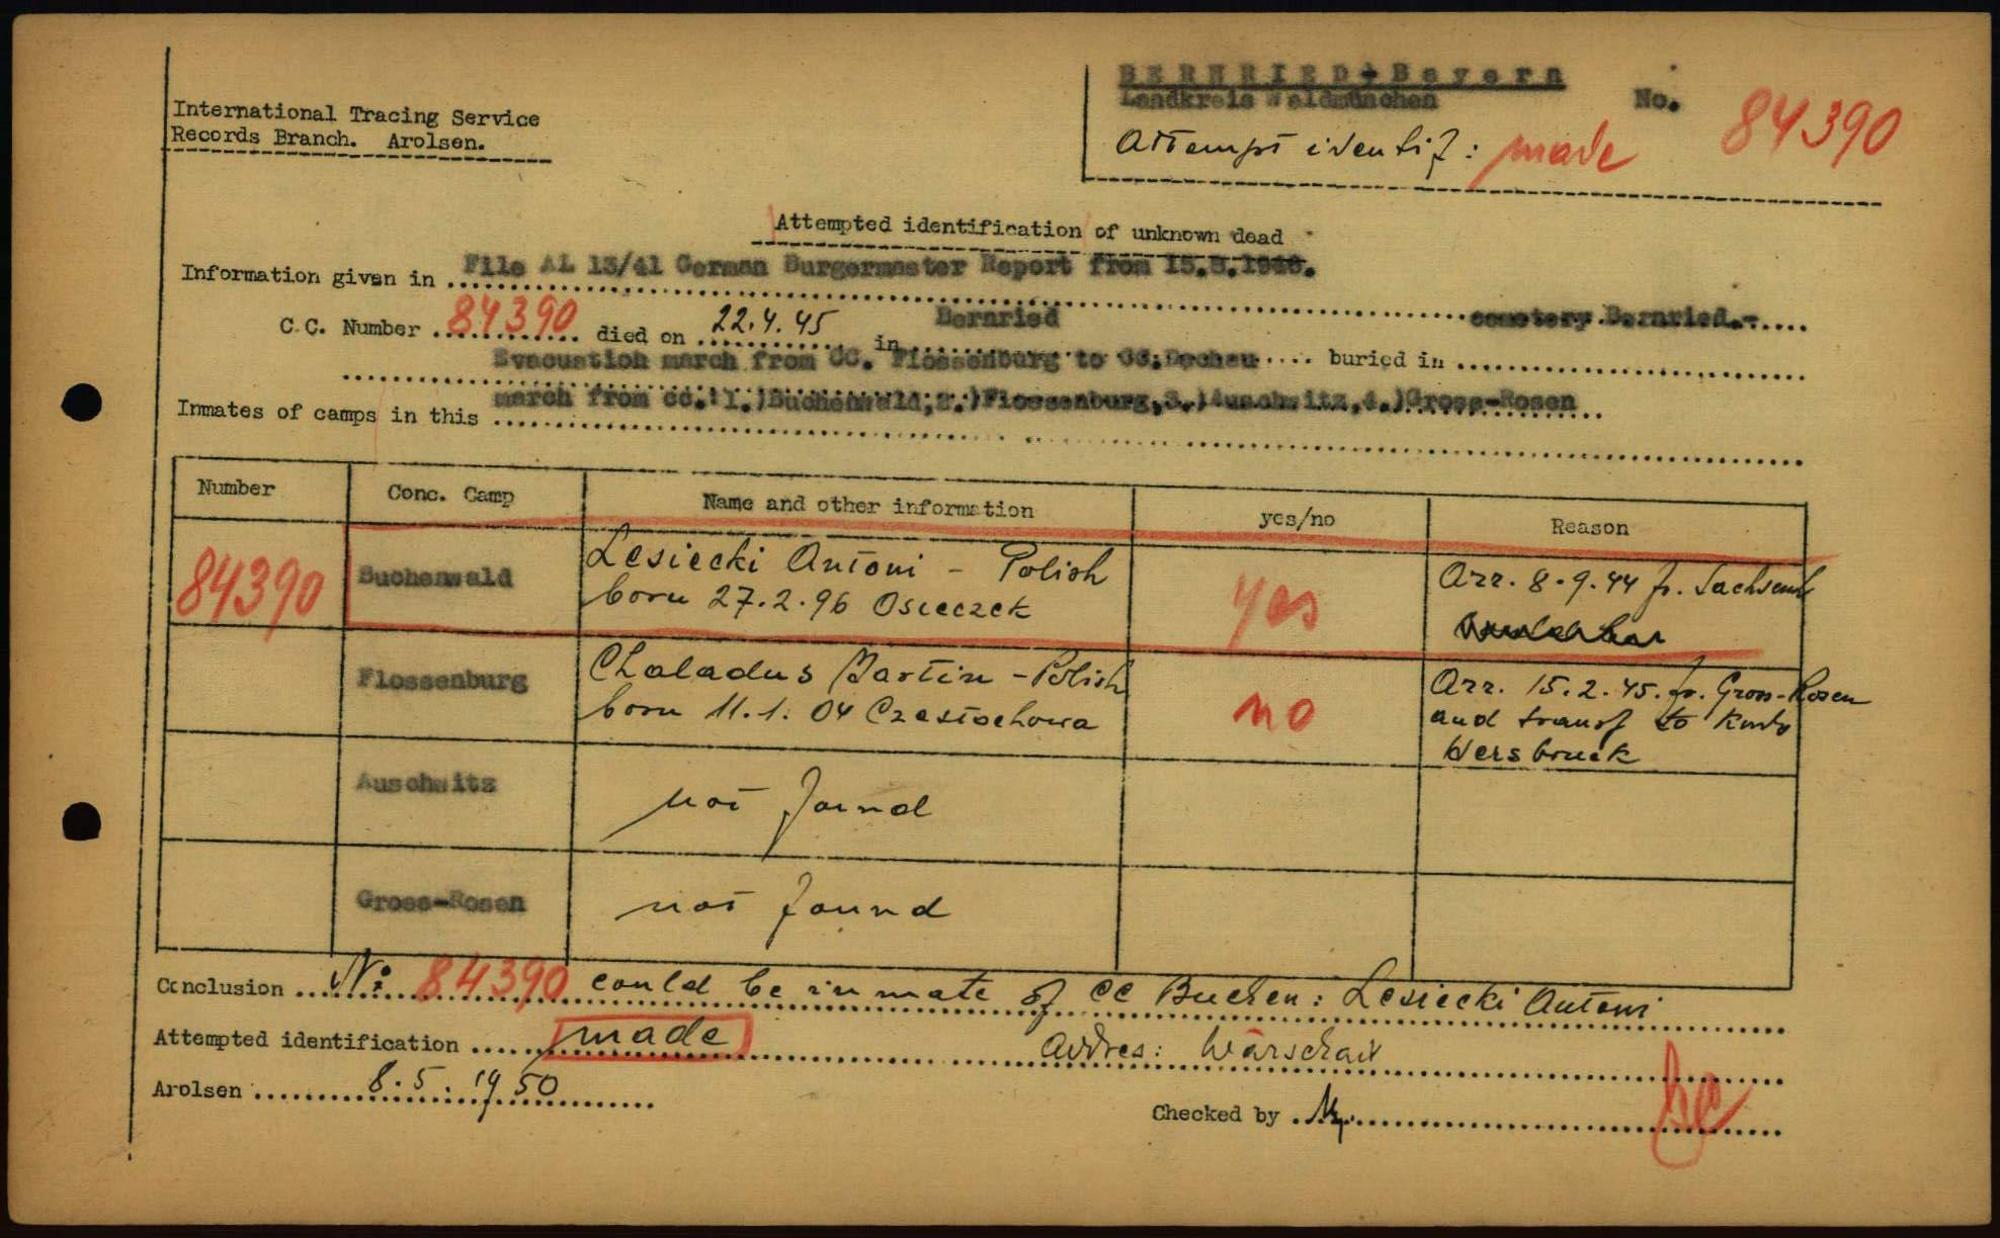 International Tracing Service
Records Branch. Arolsen.
BERNRIED + Bayern
Landkreis Waldmünchen
No. 84390
Attempt identif: made
Attempted identification of unknown dead
Information given in File AL 13/41 German Burgermaster Report from
C.C. Number 84390 died on 22.4.45 in Bernried buried in cemetery Bernried.-
Evacuation march from CC. Flossenburg to CC. Dachau
Inmates of camps in this march from CC. 1.)Buchenwald, 2.)Flossenburg, 3.)Auschwitz, 4.)Gross-Rosen
Number Conc. Camp Name and other information yes/no Reason
84390 Buchenwald Lesiecki Antoni - Polish yes Arr. 8.9.44 fr. Sachsenh
born 27.2.96 Osieczek
Flossenburg Chaladus Martin - Polish no Arr. 15.2.45. fr. Gross-Rosen
born 11.1.04 Czestochowa and transf to Kmdo
Hersbruck
Auschwitz not found
Gross-Rosen not found
Conclusion No: 84390 could be inmate of CC Buchen: Lesiecki Antoni
Attempted identification made Addres: Warschau
Arolsen 8.5.1950
Checked by